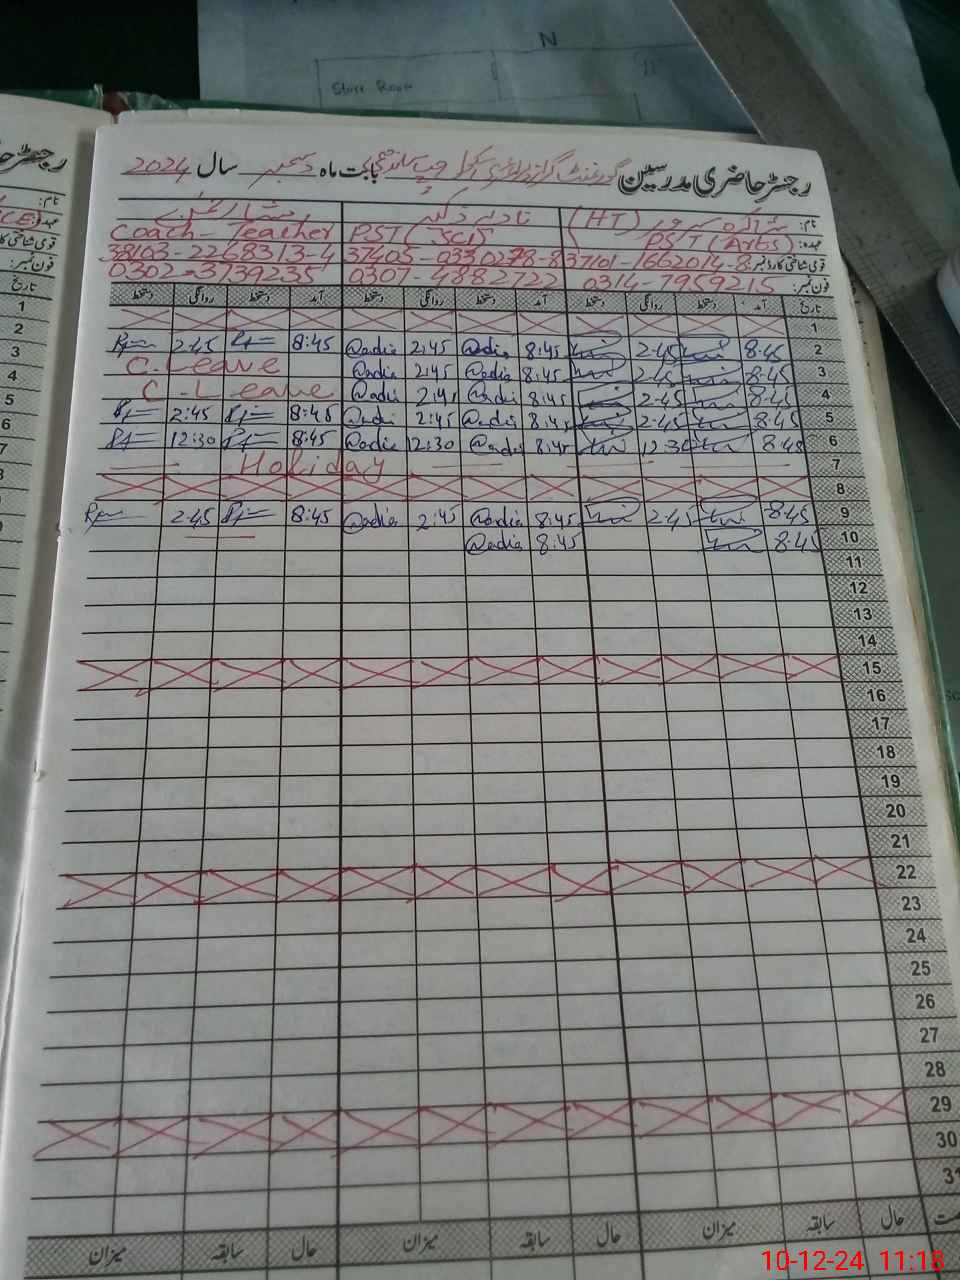 N
Store Room
رجسٹر حاضری مدرسین گورنمنٹ گرلز پرائمری سکول بابت ماہ دسمبر سال 2024
نام: (HT) نادیہ ذکیہ
عہدہ: PST (Arts) PST (Sci) Coach-Teacher
قومی شناختی کارڈ نمبر: 37101-1662014-8 37405-0330278-8 38103-2268313-4
فون نمبر: 0314-7959215 0307-4882722 0302-3739235
تاریخ آمد دستخط روانگی دستخط آمد دستخط روانگی دستخط آمد دستخط روانگی دستخط
1
2 8:45 2:45 8:45 Qadia 2:45 Qadia 8:45 2:45
3 8:45 2:45 8:45 Qadia 2:45 Qadia C. Leave
4 8:45 2:45 8:45 Qadia 2:45 Qadia C. Leave
5 8:45 2:45 8:45 Qadia 2:45 Qadia 8:45 2:45
6 8:45 12:30 8:45 Qadia 12:30 Qadia 8:45 12:30
7 Holiday
8
9 8:45 2:45 8:45 Qadia 2:45 Qadia 8:45 2:45
10 8:45 8:45 Qadia
11
12
13
14
15
16
17
18
19
20
21
22
23
24
25
26
27
28
29
30
31
حال سابقہ میزان حال سابقہ میزان حال سابقہ میزان
10-12-24 11:18